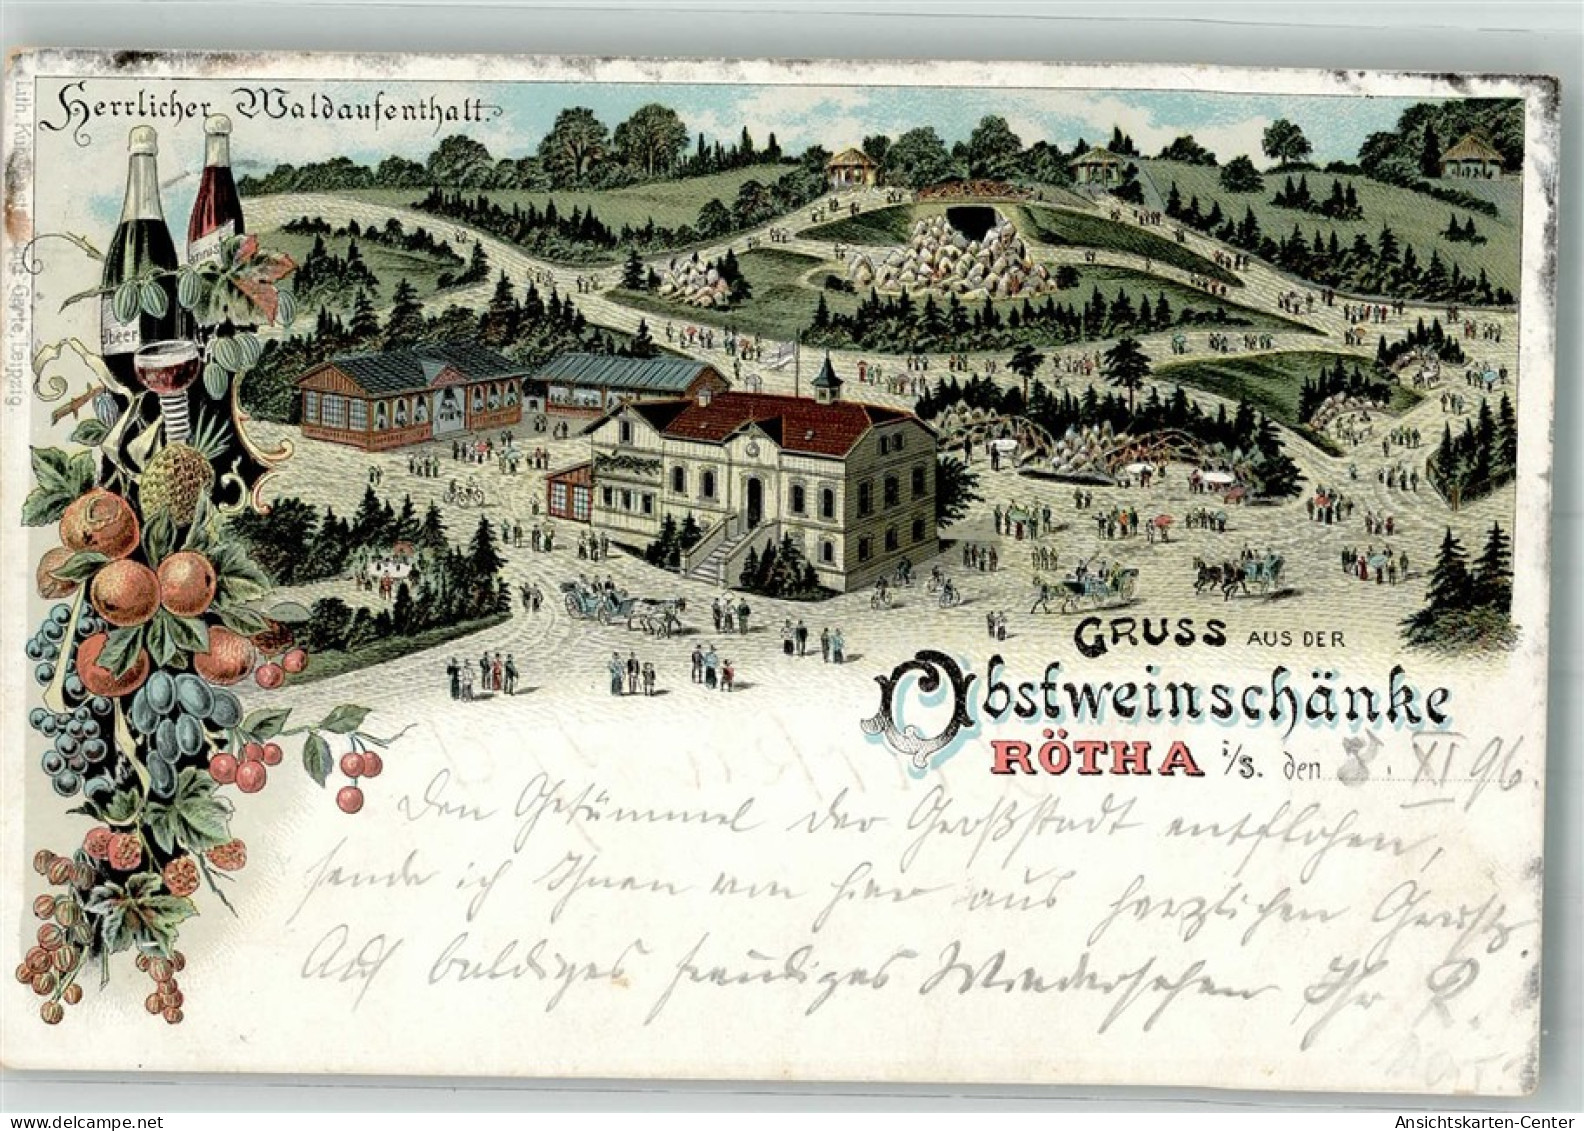 Herrlicher Waldaufenthalt.
GRUSS AUS DER
Obstweinschänke
RÖTHA i/S. den 8. XI 96.
Den Getümmel der Großstadt entflohen,
sende ich Ihnen von hier aus herzlichen Gruß.
Auf baldiges freudiges Wiedersehen Ihr R.
Ansichtskarten-Center